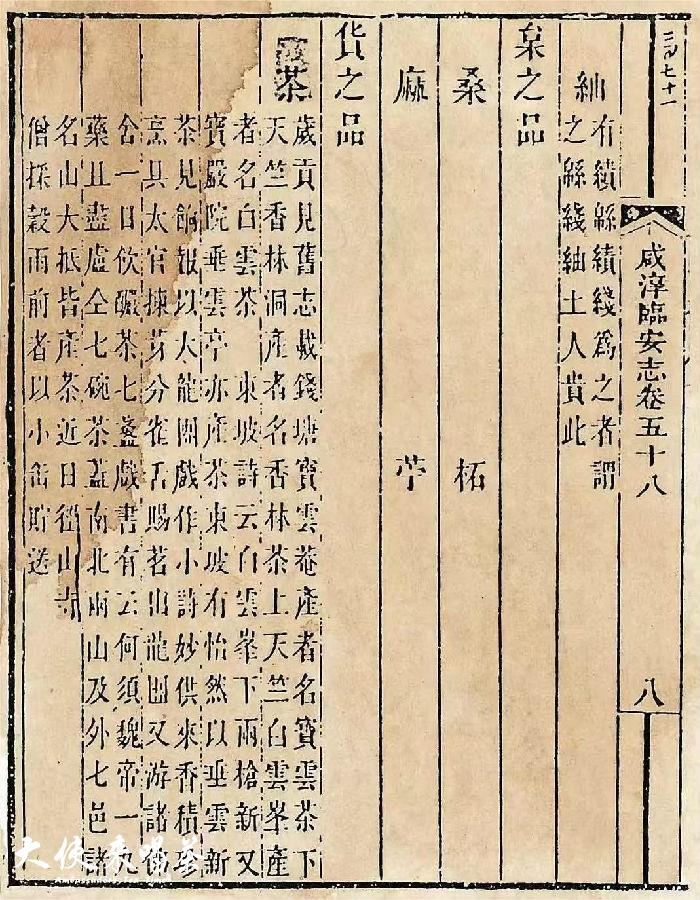 七十一
咸淳臨安志卷五十八 八
紬 有績緜績綫爲之者謂
之緜綫紬土人貴此
枲之品
桑 柘
麻 苧
貨之品
茶
歲貢見舊志載錢塘寶雲菴產者名寶雲茶下
天竺香林洞產者名香林茶上天竺白雲峯產
者名白雲茶 東坡詩云白雲峯下兩槍新又
寶嚴院垂雲亭亦產茶東坡有怡然以垂雲新
茶見餉報以大龍團戲作小詩妙供來香積珍
烹具太官揀芽分雀舌賜茗出龍團又游諸佛
舍一日飲釅茶七盞戲書有云何須魏帝一丸
藥且盡盧仝七碗茶蓋南北兩山及外七邑諸
名山大抵皆產茶近日徑山寺
僧採穀雨前者以小缶貯送